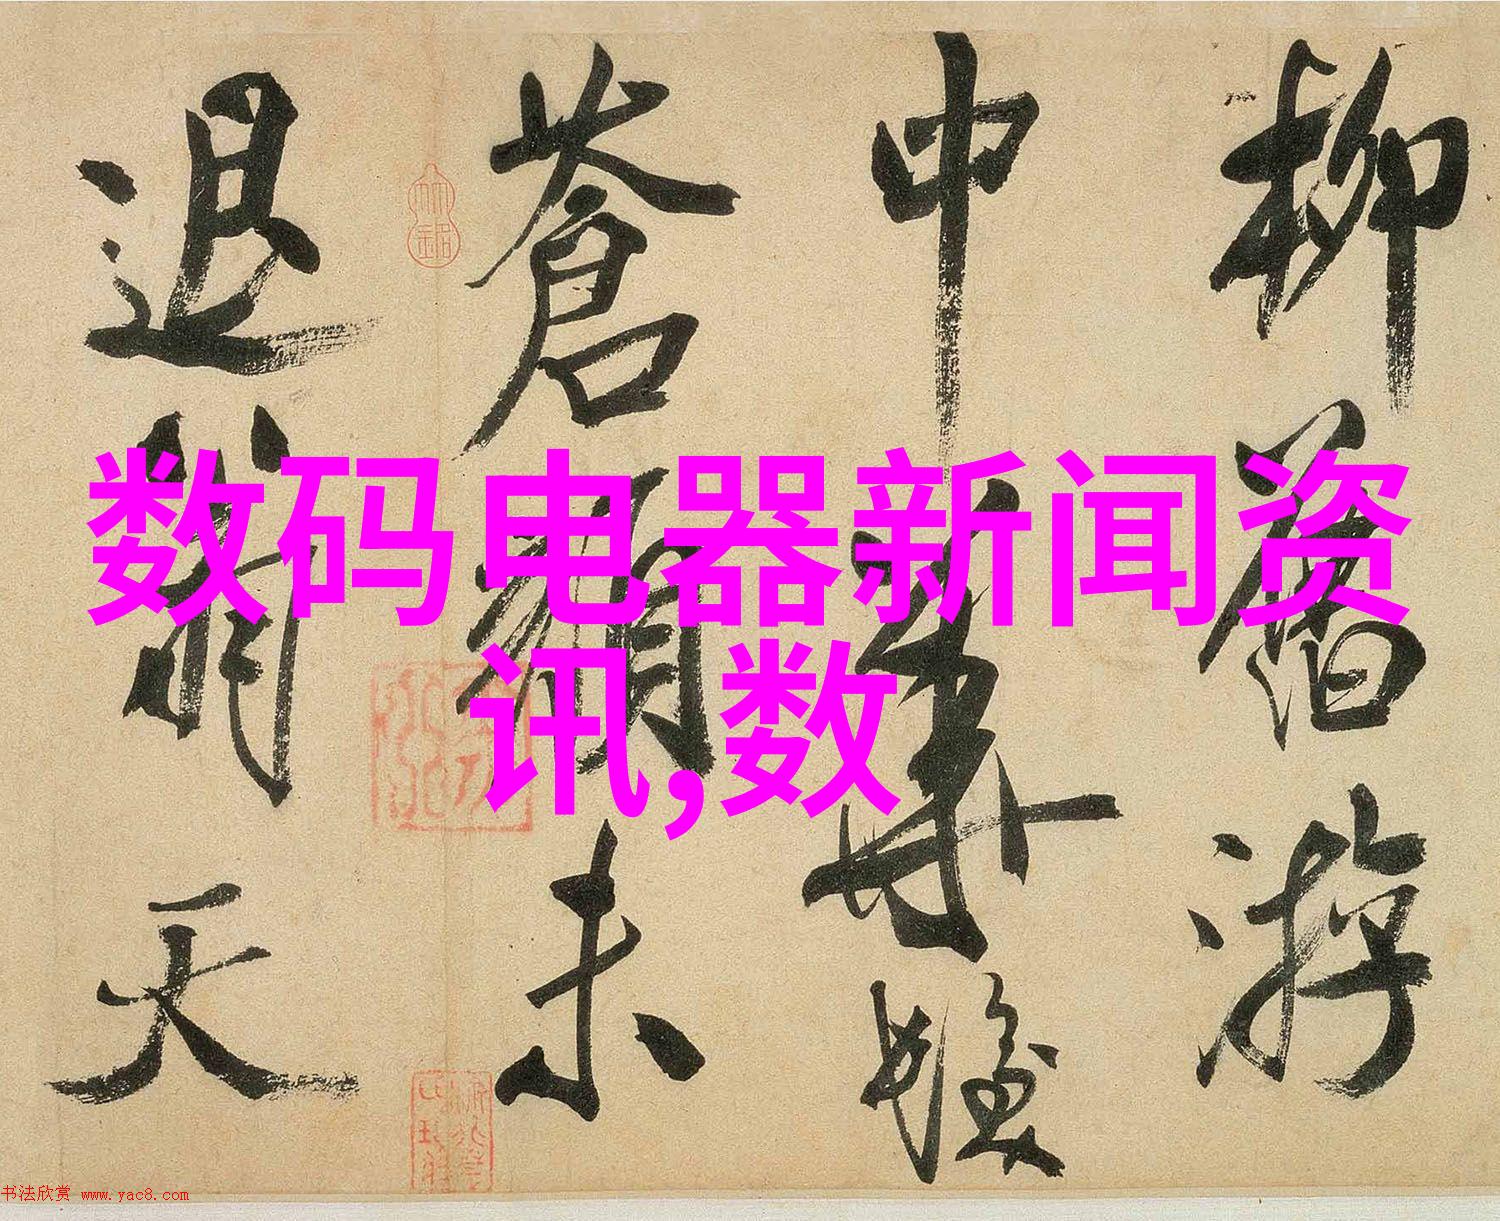 柳舊游
中華
蒼顏未
退翁天
数码电器新闻资
讯,数
书法欣赏 www.yac8.com